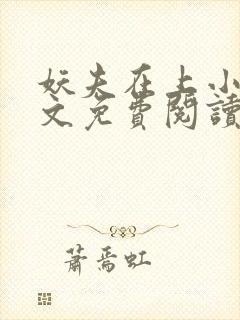 妖夫在上小
文免費閱讀
蕭焉虹